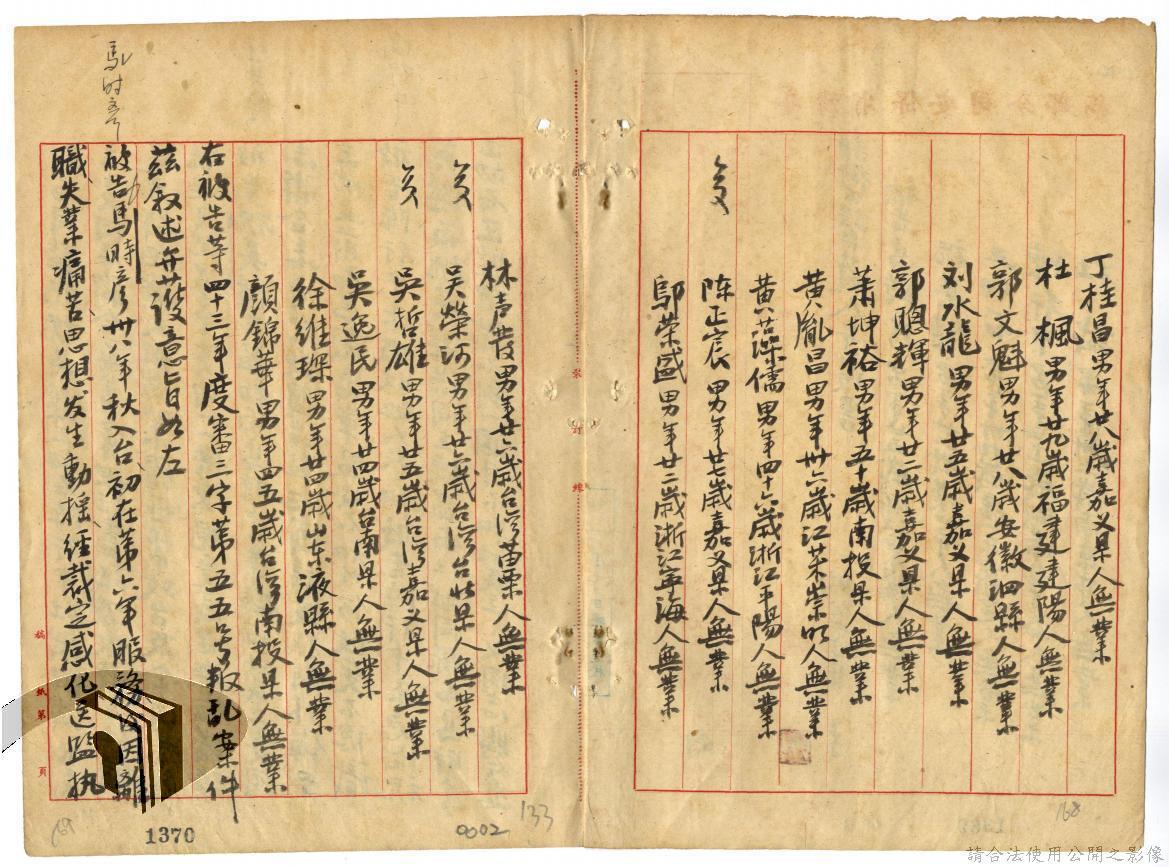 丁桂昌男年廿八歲嘉义県人無業
杜楓男年廿九歲福建建陽人無業
郭文魁男年廿八歲安徽泗縣人無業
刘水龍男年廿五歲嘉义県人無業
郭聰輝男年廿二歲嘉义県人無業
萧坤裕男年五十歲南投県人無業
黄胤昌男年卅六歲江苏崇明人無業
黄葆儒男年四十六歲浙江平陽人無業
陈正宸男年廿七歲嘉义県人無業
鄔荣盛男年廿二歲浙江寧海人無業
林声發男年廿六歲台湾苗栗人無業
吴榮河男年廿六歲台湾台北県人無業
吳哲雄男年廿五歲台湾嘉义県人無業
吳逸民男年廿四歲台南県人無業
徐维琛男年廿四歲山东液縣人無業
顏錦華男年四五歲台湾南投県人無業
右被告等四十三年度審三字第五五号叛乱案件
茲叙述弁護意旨如左
馬时彦
被告馬時彦卅八年秋入台初在第六年服務後因離
職失業痛苦思想发生動摇经裁定感化送監执
裝
訂
線
稿紙第 頁
168
169
133
0002
1370
請合法使用公開之影像